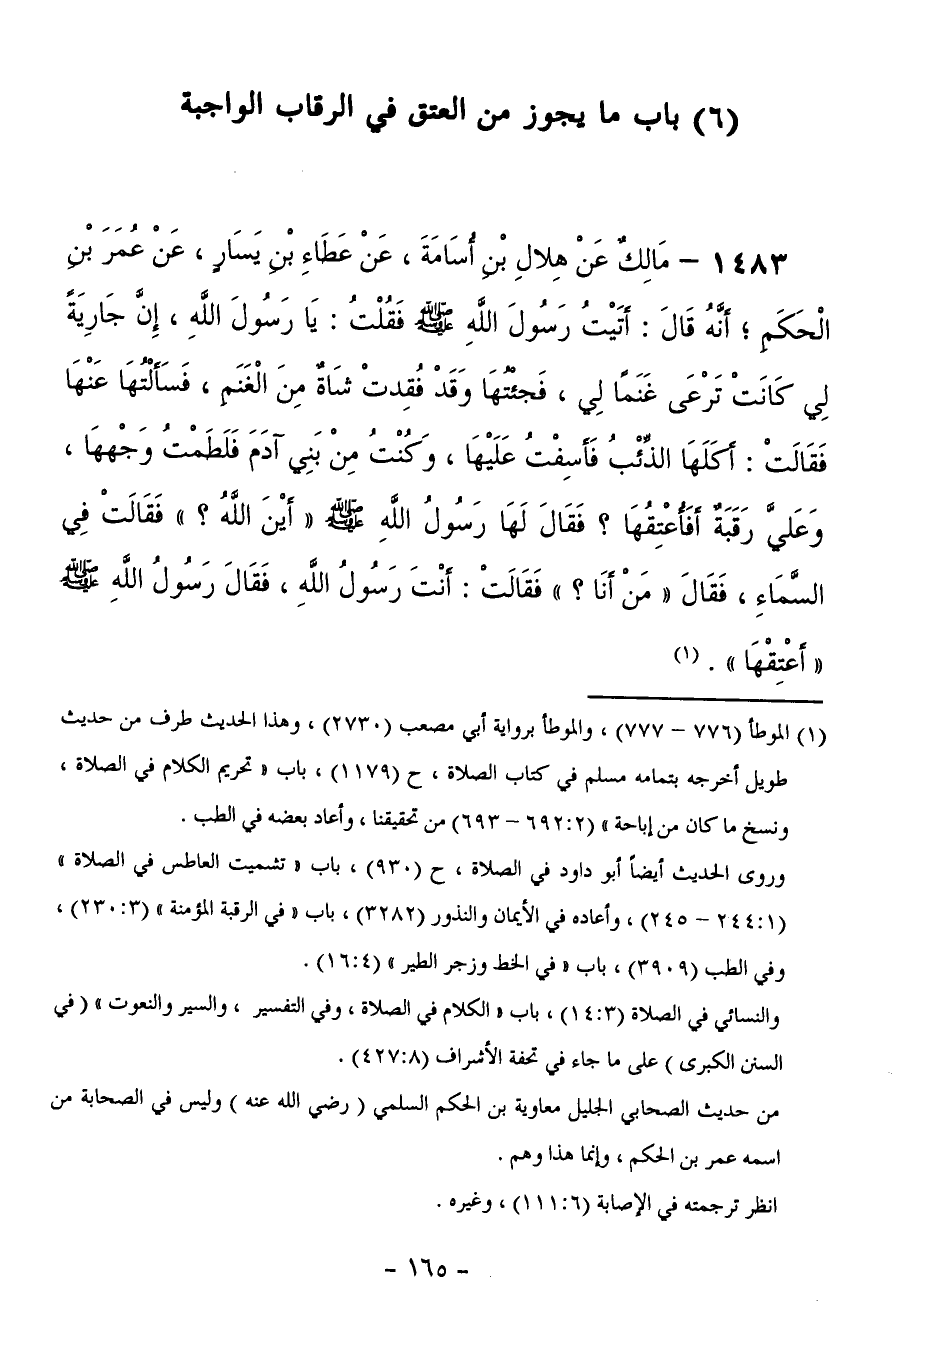 (٦) باب ما يجوز من العتق في الرقاب الواجبة
١٤٨٣ – مَالِكٌ عَنْ هِلالِ بْنِ أُسَامَةَ ، عَنْ عَطَاءِ بْنِ يَسَارٍ ، عَنْ عُمَرَ بْنِ
الْحَكَمِ ؛ أَنَّهُ قَالَ : أَتَيْتُ رَسُولَ اللَّهِ ﷺ فَقُلْتُ : يَا رَسُولَ اللَّهِ ، إِنَّ جَارِيَةً
لِي كَانَتْ تَرْعَى غَنَمًا لِي ، فَجِئْتُهَا وَقَدْ فُقِدتْ شَاةٌ مِنَ الْغَنَمِ ، فَسَأَلْتُهَا عَنْهَا
فَقَالَتْ : أَكَلَهَا الذِّئْبُ فَأَسِفْتُ عَلَيْهَا ، وَكُنْتُ مِنْ بَنِي آدَمَ فَلَطَمْتُ وَجْهِهَا ،
وَعَلَيَّ رَقَبَةٌ أَفَأُعْتِقُهَا ؟ فَقَالَ لَهَا رَسُولُ اللَّهِ ﷺ « أَيْنَ اللَّهُ ؟ » فَقَالَتْ فِي
السَّمَاءِ ، فَقَالَ « مَنْ أَنَا ؟ » فَقَالَتْ : أَنْتَ رَسُولُ اللَّهِ ، فَقَالَ رَسُولُ اللَّهِ ﷺ
« أَعْتِقْهَا » . (١)
(١) الموطأ (٧٧٦ – ٧٧٧) ، والموطأ برواية أبي مصعب (٢٧٣٠) ، وهذا الحديث طرف من حديث
طويل أخرجه بتمامه مسلم في كتاب الصلاة ، ح (١١٧٩) ، باب « تحريم الكلام في الصلاة ،
ونسخ ما كان من إباحة » (٦٩٢:٢ – ٦٩٣) من تحقيقنا ، وأعاد بعضه في الطب .
وروى الحديث أيضاً أبو داود في الصلاة ، ح (٩٣٠) ، باب « تشميت العاطس في الصلاة »
(٢٤٤:١ – ٢٤٥) ، وأعاده في الأيمان والنذور (٣٢٨٢) ، باب « في الرقبة المؤمنة » (٢٣٠:٣) ،
وفي الطب (٣٩٠٩) ، باب « في الخط وزجر الطير » (١٦:٤) .
والنسائي في الصلاة (١٤:٣) ، باب « الكلام في الصلاة ، وفي التفسير ، والسير والنعوت » ( في
السنن الكبرى ) على ما جاء في تحفة الأشراف (٤٢٧:٨) .
من حديث الصحابي الجليل معاوية بن الحكم السلمي ( رضي الله عنه ) وليس في الصحابة من
اسمه عمر بن الحكم ، وإنما هذا وهم .
انظر ترجمته في الإصابة (١١١:٦) ، وغيره .
– ١٦٥ –